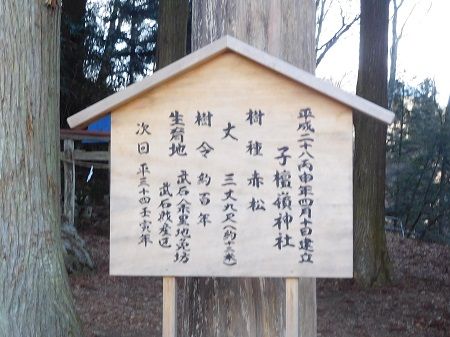 平成二八丙申年四月十日建立
子檀嶺神社
樹種 赤松
丈 三丈九尺(約十二米)
樹令 約百年
生育地 武石余里地売坊
武石財産区
次回 平三十四壬寅年